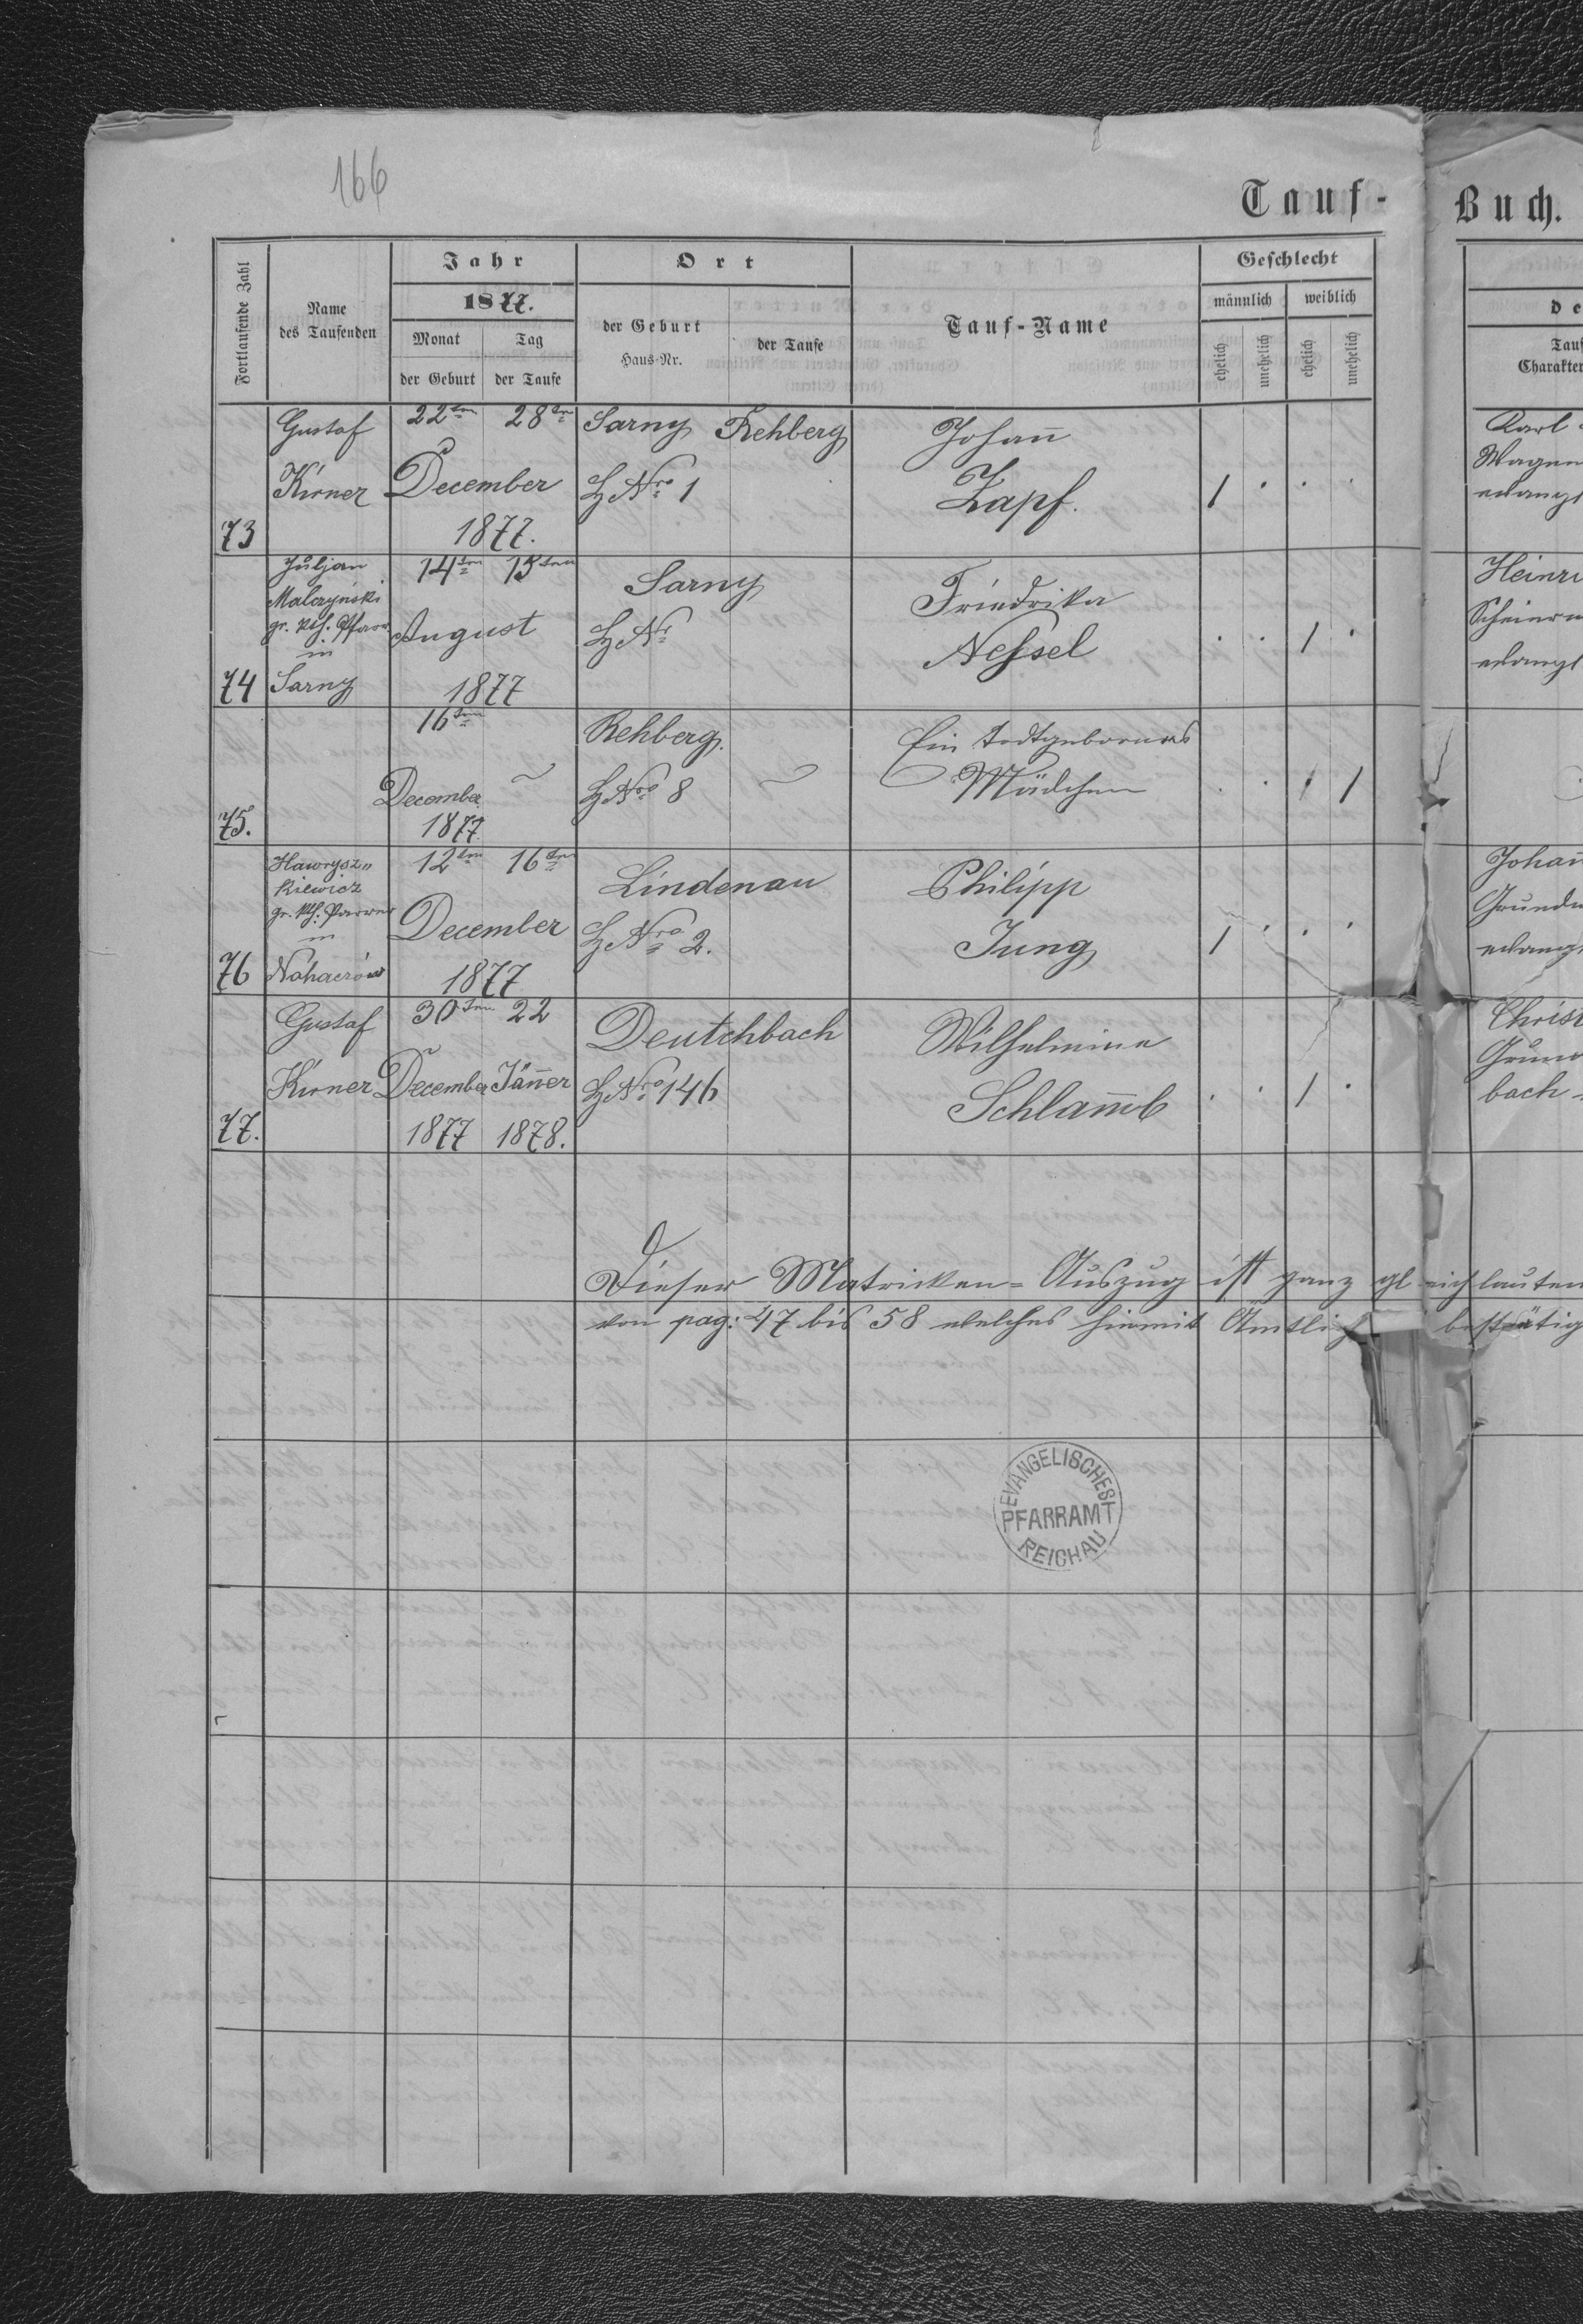 166
Tauf-
Buch.
Fortlaufende Zahl
Name
des Taufenden
Jahr
1877.
Monat
Tag
der Geburt
der Taufe
Ort
der Geburt
Haus-Nr.
der Taufe
Tauf-Name
Geschlecht
männlich
weiblich
ehelich
unehelich
ehelich
unehelich
de
Tauf
Charakter
Gustaf 22ten 28ten Sarny Rehberg Johan̄ Karl
Kirner December H Nro 1 Zapf. 1 · · · Wagen
evangl
73 1877.
Juljan 14ten 15ten Sarny Heinri
Malczyński Friedrika
gr. kth. Pfarr August H Nr Scheiner
in Neſsel · · 1 · evangl
74 Sarny 1877
16ten Rehberg. Ein todtgebornes
December ~ H Nro 8 ~ Mädchen · · 1 1
75. 1877
Hawrysz„ 12ten 16ten Lindenau Philipp Johan̄
kiewicz
gr. kth. Parrer December H Nro 2. Jung 1 · · · Grundw
in evangl
76 Nahaczów 1877
Gustaf 30ten 22 Deutchbach Wilhelmine Christ
Grund
Kirner December Jän̄er H Nro 146 Schlam̄b · · 1 · bach
77. 1877 1878.
Dieser Matricken=Auszug ist ganz gleichlauten
von pag: 47 bis 58 welches hiemit Ämtlich bestätig
EVANGELISCHES
PFARRAMT
REICHAU